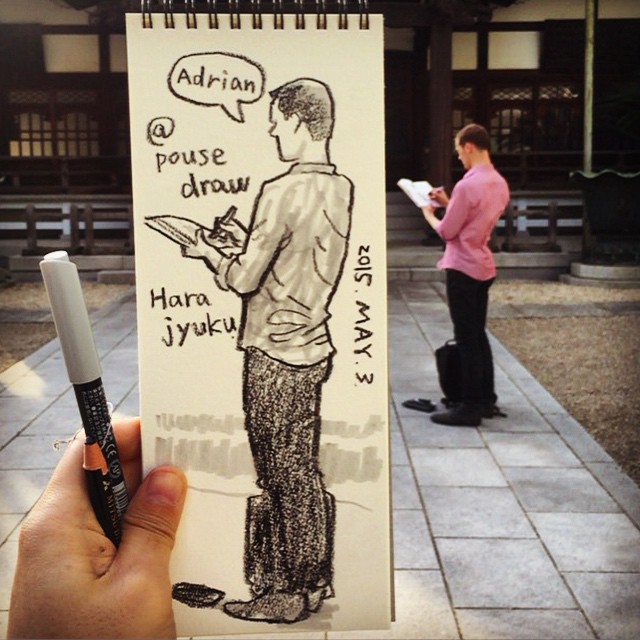 Adrian
@
pouse
draw
Hara
jyuku
2015. MAY. 3.